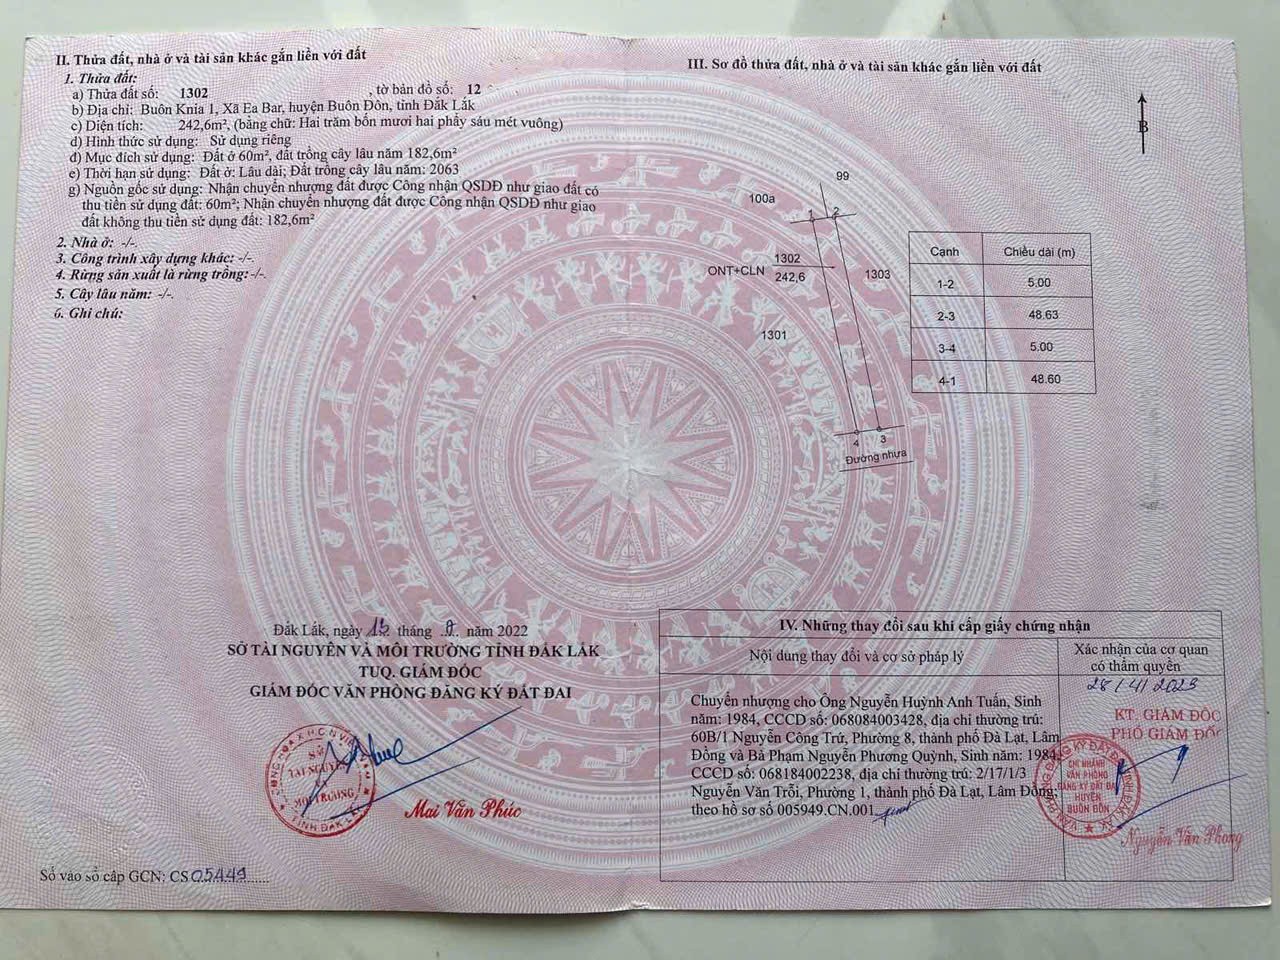 II. Thửa đất, nhà ở và tài sản khác gắn liền với đất
1. Thửa đất:
a) Thửa đất số: 1302 , tờ bản đồ số: 12
b) Địa chỉ: Buôn Knia 1, Xã Ea Bar, huyện Buôn Đôn, tỉnh Đắk Lắk
c) Diện tích: 242,6m², (bằng chữ: Hai trăm bốn mươi hai phẩy sáu mét vuông)
d) Hình thức sử dụng: Sử dụng riêng
đ) Mục đích sử dụng: Đất ở 60m², đất trồng cây lâu năm 182,6m²
e) Thời hạn sử dụng: Đất ở: Lâu dài; Đất trồng cây lâu năm: 2063
g) Nguồn gốc sử dụng: Nhận chuyển nhượng đất được Công nhận QSDĐ như giao đất có
thu tiền sử dụng đất: 60m²; Nhận chuyển nhượng đất được Công nhận QSDĐ như giao
đất không thu tiền sử dụng đất: 182,6m²
2. Nhà ở: -/-.
3. Công trình xây dựng khác: -/-.
4. Rừng sản xuất là rừng trồng: -/-.
5. Cây lâu năm: -/-.
6. Ghi chú:
Đắk Lắk, ngày 13 tháng năm 2022
SỞ TÀI NGUYÊN VÀ MÔI TRƯỜNG TỈNH ĐẮK LẮK
TUQ. GIÁM ĐỐC
GIÁM ĐỐC VĂN PHÒNG ĐĂNG KÝ ĐẤT ĐAI
SỞ
TÀI NGUYÊN
MÔI TRƯỜNG
TỈNH ĐẮK LẮK
Mai Văn Phúc
Số vào sổ cấp GCN: CS 05449
III. Sơ đồ thửa đất, nhà ở và tài sản khác gắn liền với đất
B
99
100a
1 2
1302
ONT+CLN 242,6
1303
1301
4 3
Đường nhựa
Cạnh Chiều dài (m)
1-2 5.00
2-3 48.63
3-4 5.00
4-1 48.60
IV. Những thay đổi sau khi cấp giấy chứng nhận
Nội dung thay đổi và cơ sở pháp lý
Xác nhận của cơ quan
có thẩm quyền
Chuyển nhượng cho Ông Nguyễn Huỳnh Anh Tuấn, Sinh
năm: 1984, CCCD số: 068084003428, địa chỉ thường trú:
60B/1 Nguyễn Công Trứ, Phường 8, thành phố Đà Lạt, Lâm
Đồng và Bà Phạm Nguyễn Phương Quỳnh, Sinh năm: 1984,
CCCD số: 068184002238, địa chỉ thường trú: 2/17/1/3
Nguyễn Văn Trỗi, Phường 1, thành phố Đà Lạt, Lâm Đồng;
theo hồ sơ số 005949.CN.001
28/4/2023
KT. GIÁM ĐỐC
PHÓ GIÁM ĐỐC
CHI NHÁNH
VĂN PHÒNG
ĐĂNG KÝ ĐẤT ĐAI
HUYỆN
BUÔN ĐÔN
Nguyễn Văn Phong